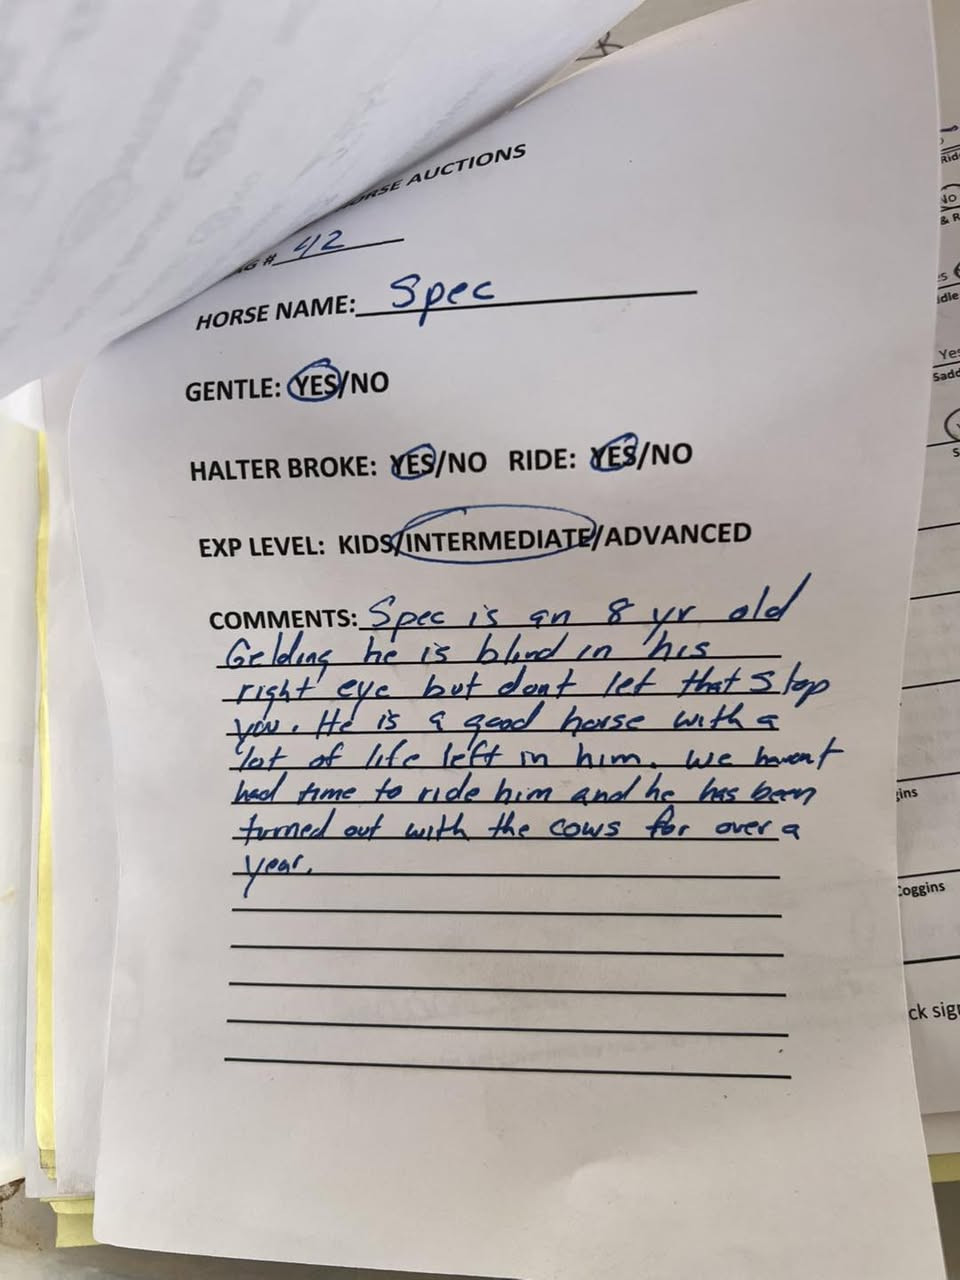 HORSE AUCTIONS
# 42
HORSE NAME: Spec
GENTLE: YES/NO
HALTER BROKE: YES/NO RIDE: YES/NO
EXP LEVEL: KIDS/INTERMEDIATE/ADVANCED
COMMENTS: Spec is an 8 yr old
Gelding he is blind in his
right eye but dont let that stop
you. He is a good horse with a
lot of life left in him. we havent
had time to ride him and he has been
turned out with the cows for over a
year.
Rid
No
& R
es
dle
Yes
Sadd
gins
Coggins
ck sig